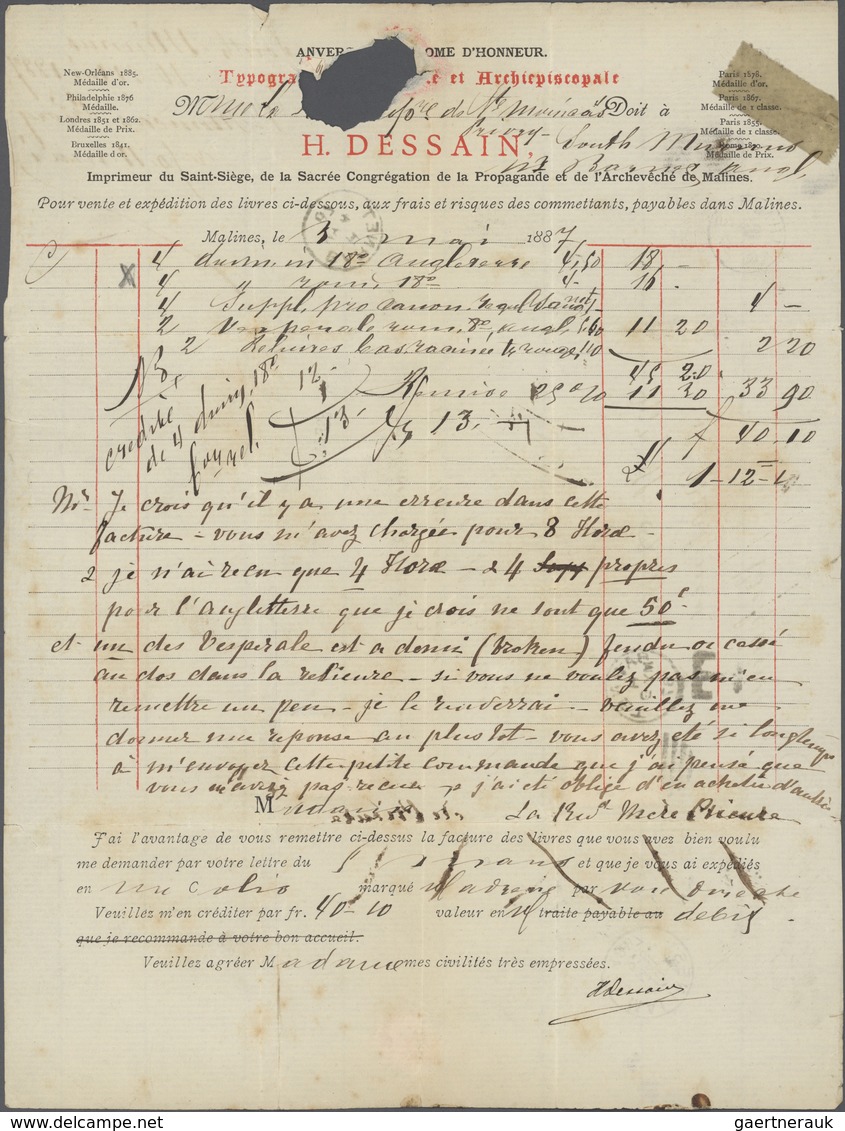 ANVER OME D'HONNEUR.
New-Orléans 1885.
Médaille d'or.
Philadelphie 1876
Médaille.
Londres 1851 et 1862.
Médaille de Prix.
Bruxelles 1841.
Médaille d'or.
Paris 1878.
Médaille d'or.
Paris 1867.
Médaille de 1 classe.
Paris 1855.
Médaille de 1 classe.
Rome 1870.
Médaille de Prix.
Typogra e et Archiepiscopale
Doit à
H. DESSAIN,
South
Imprimeur du Saint-Siège, de la Sacrée Congrégation de la Propagande et de l'Archevêché de Malines.
Pour vente et expédition des livres ci-dessous, aux frais et risques des commettants, payables dans Malines.
Malines, le 3 mai 1887
4 18º Angleterre 4,50 18 –
4 " rom. 18º 4- 16
4 Suppl. pro 4 –
2 Vesperale rom. 8º angl. 5,60 11 20
2 Reliures rouge 110 2 20
45 20
Remise 25 % 11 30 33 90
40 10
1-12-1
NB. credité de 4 18º 12-
13
13.
Mr Je crois qu'il y a une erreure dans cette
facture – vous m'avez chargée pour 8 Horæ –
2 je n'ai recu que 4 Horæ – & 4 propres
pour l'Angletterre que je crois ne sont que 50c
et un des Vesperale est a demi (broken) fendu ou cassé
au dos dans la relieure – si vous ne voulez pas m'en
remettre un peu – je le renderrai – veuillez me
donner une reponse au plus tot – vous avez eté si longtemps
à m'envoyez cette petite commande que j'ai pensé que
vous m'aviez pas recu & j'ai eté oblige d'en acheter d'autre
La Revd Mere Prieure
M
J'ai l'avantage de vous remettre ci-dessus la facture des livres que vous avez bien voulu
me demander par votre lettre du mars et que je vous ai expédiés
en un Colis marqué Madame par van
Veuillez m'en créditer par fr. 40-10 valeur en traite payable au debit
que je recommande à votre bon accueil.
Veuillez agréer Madame mes civilités très empressées.
HDessain
www.delcampe.net
gaertnerauk